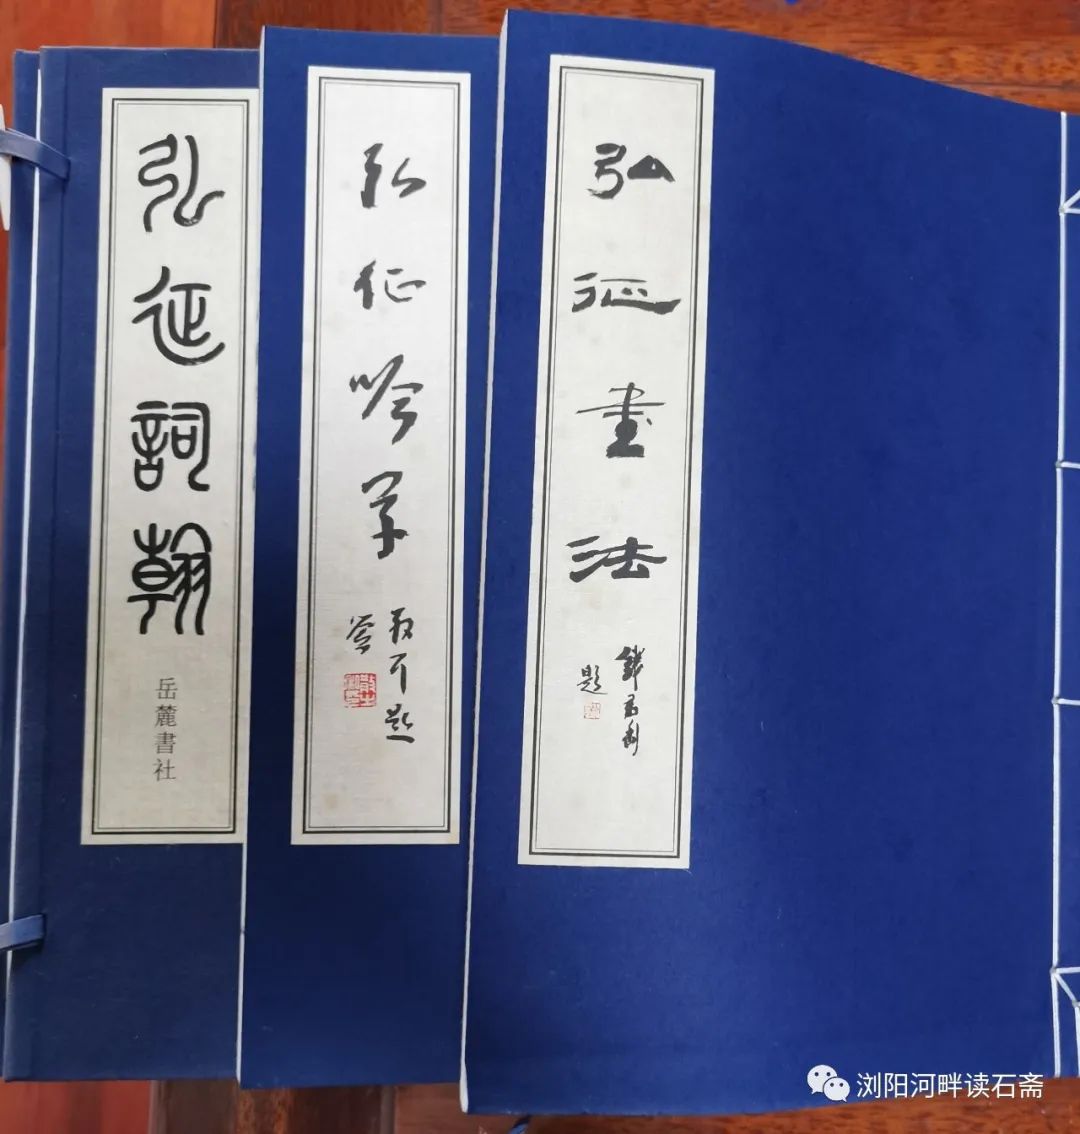 弘征詞翰
岳麓書社
弘征吟草
散耳題
簽
弘征書法
錢君匋
題
浏阳河畔读石斋